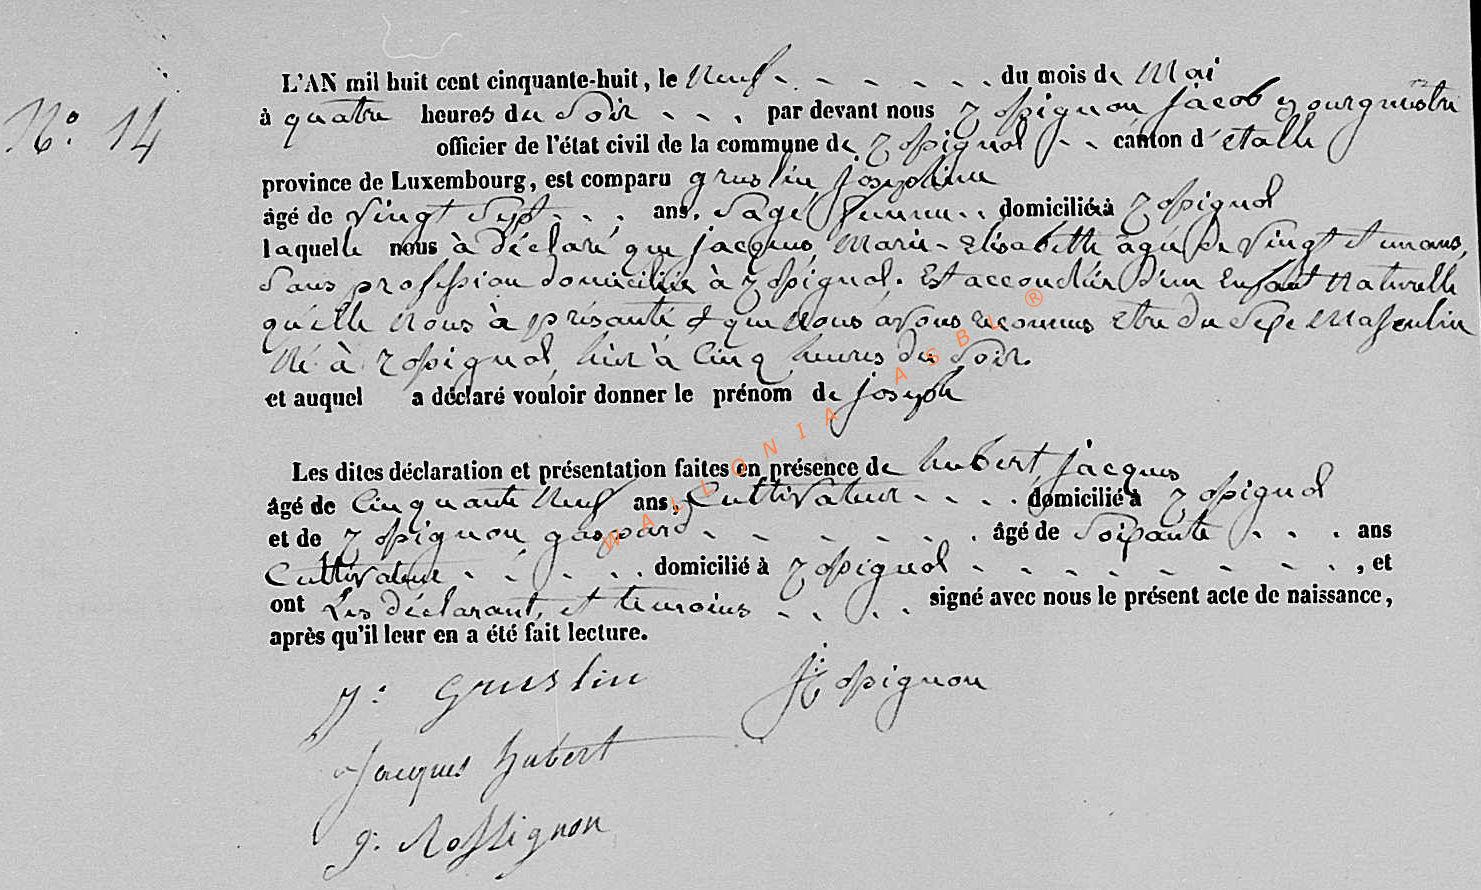 No. 14
L'AN mil huit cent cinquante-huit, le neuf du mois de Mai
à quatre heures du Soir par devant nous Rossignon jacob Bourgmestre
officier de l'état civil de la commune de Rossignol canton d'étalle
province de Luxembourg, est comparu gruslin josephine
âgé de Vingt Sept ans, Sage femme domiciliéà Rossignol
laquelle nous à déclaré que jacques, Marie-Elisabeth agée de Vingt et un ans,
Sans profession domiciliée à Rossignol. Est accouchée d'un Enfant Naturelle
qu'elle Nous à présanté & que Nous avons reconnus etre du Sexe Masculin
Né à Rossignol, hier à Cinq heures du Soir.
et auquel a déclaré vouloir donner le prénom de joseph
Les dites déclaration et présentation faites en présence de hubert jacques
âgé de Cinquante Neuf ans, Cultivateur domicilié à Rossignol
et de Rossignon gaspard âgé de Soixante ans
Cultivateur domicilié à Rossignol , et
ont Les déclarant, et temoins signé avec nous le présent acte de naissance,
après qu'il leur en a été fait lecture.
J: Gruslin J: Rossignon
Jacques hubert
g: Rossignon
WALLONIA ASBL ®